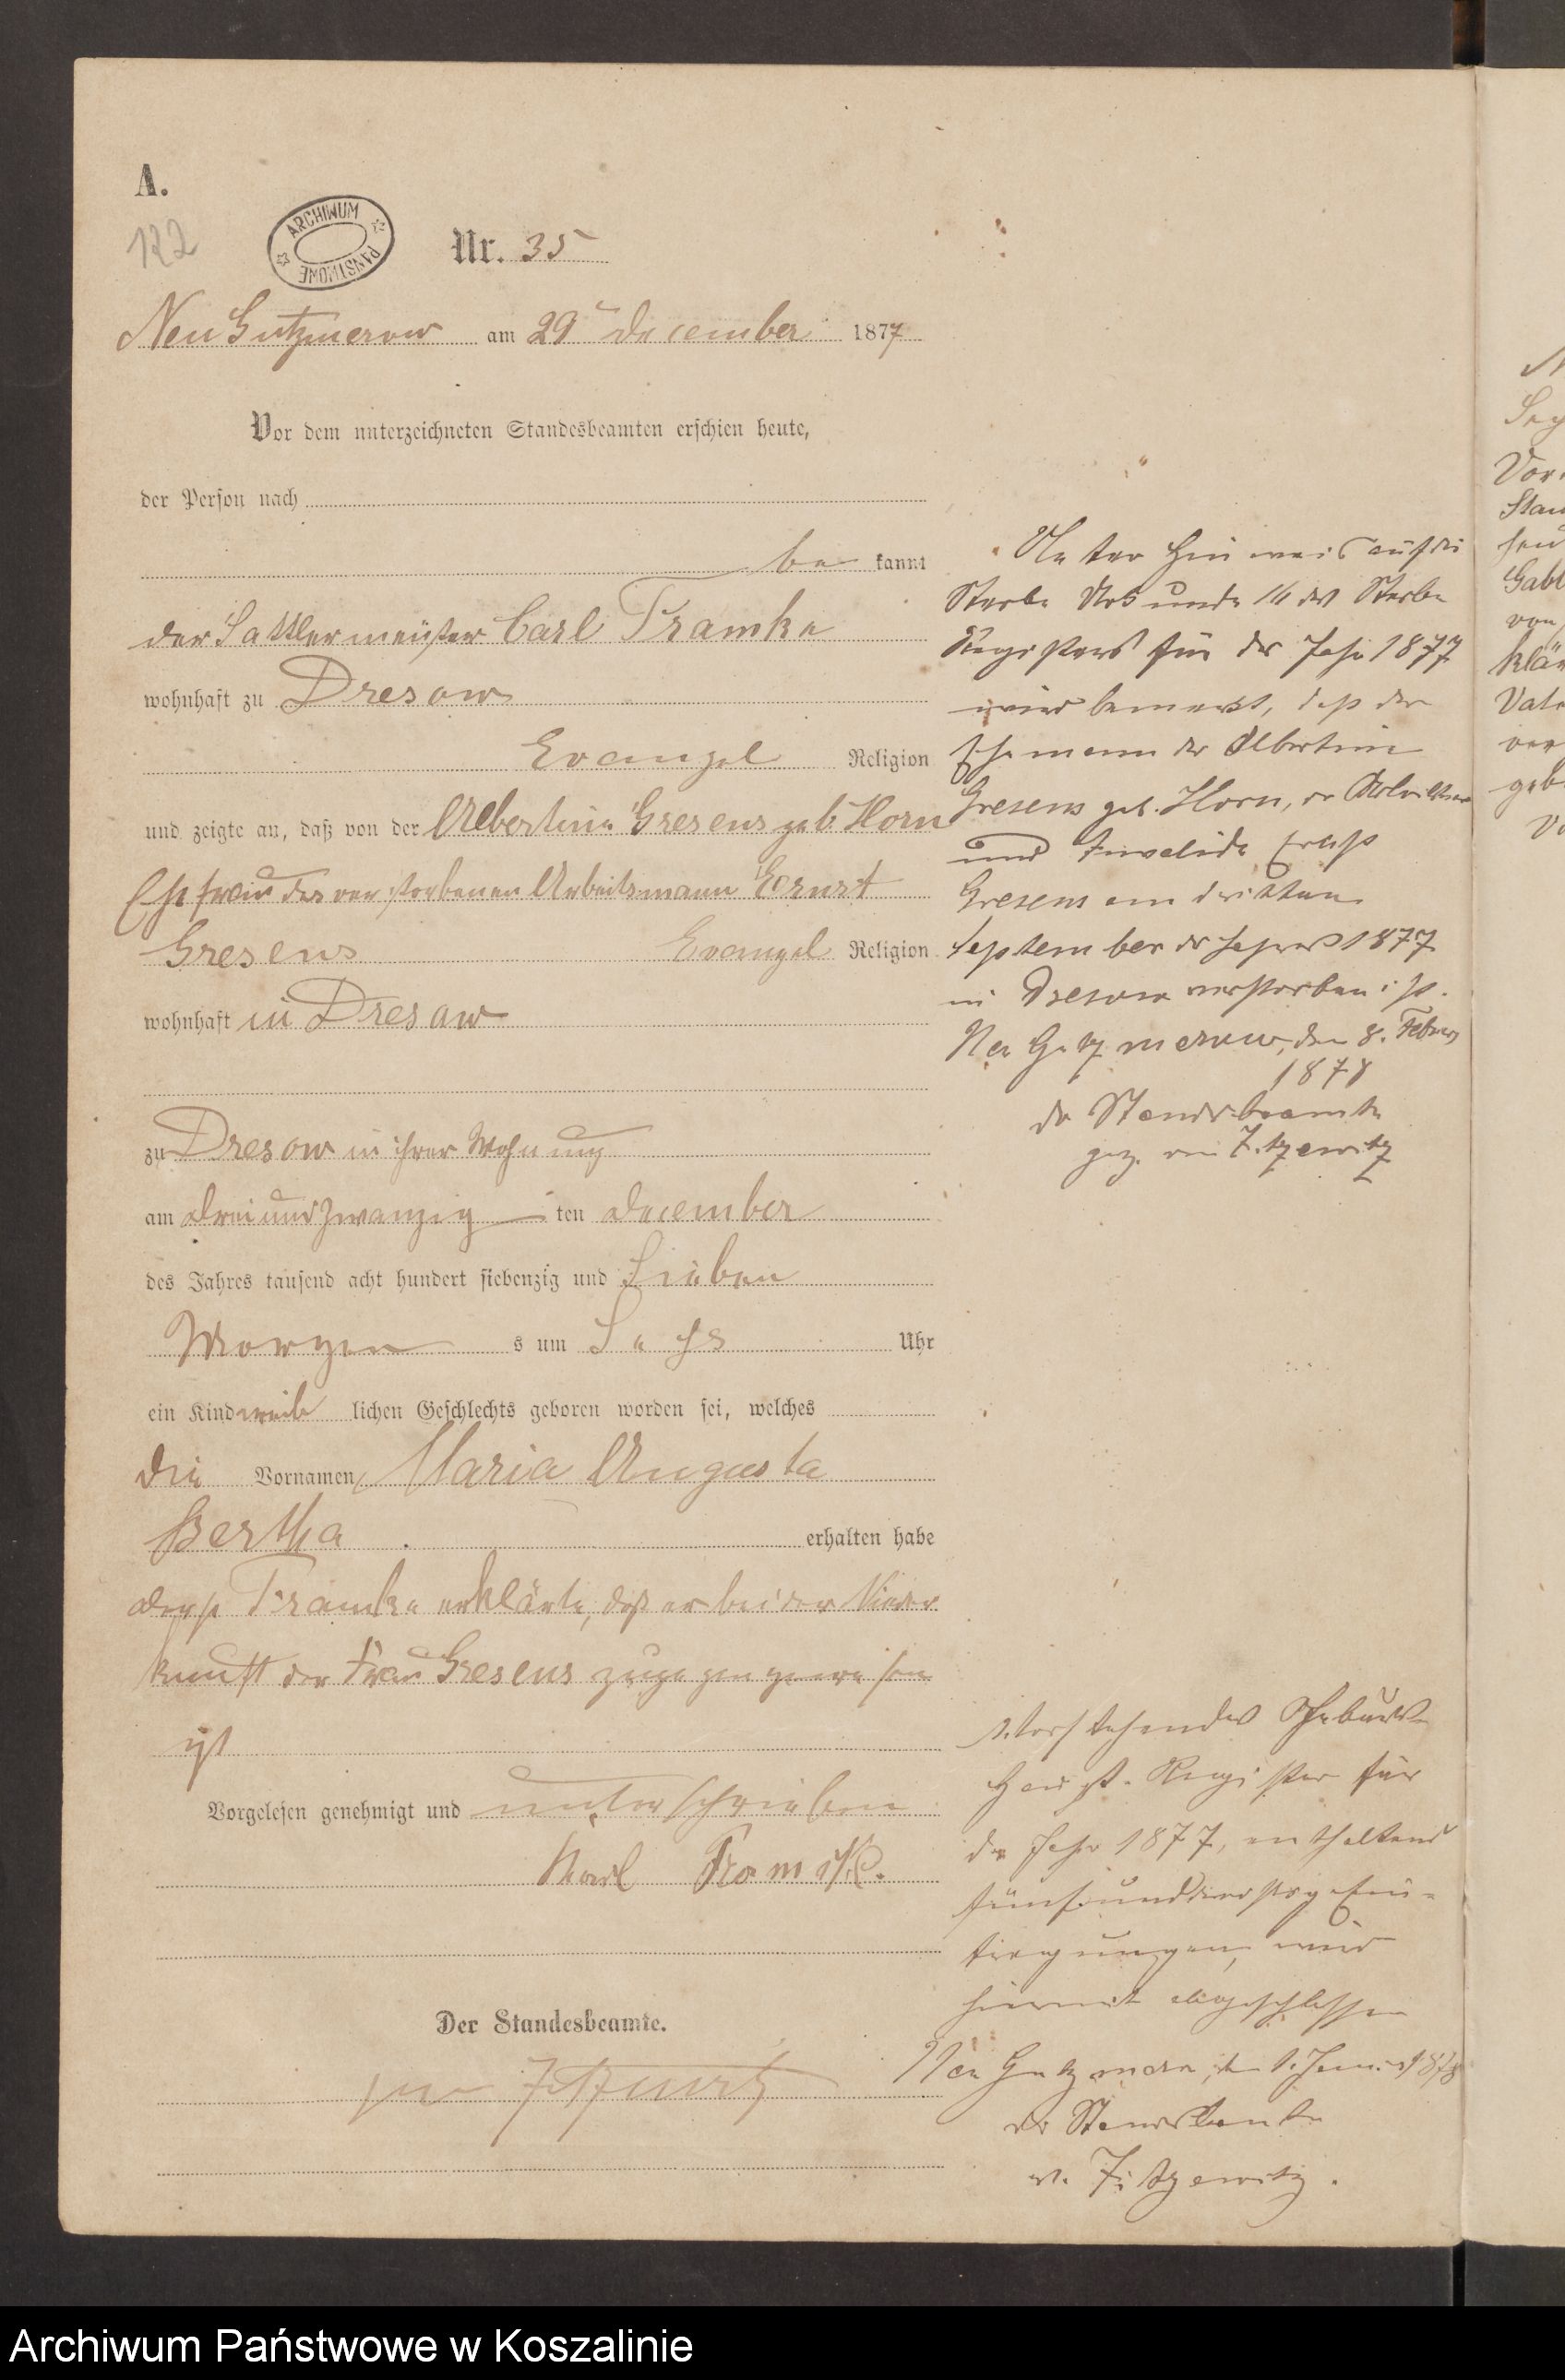 A.
122
ARCHIWUM PAŃSTWOWE
Nr. 35
Neu Gutzmerow am 29ten December 1877
Vor dem unterzeichneten Standesbeamten erschien heute,
der Person nach
be kannt
der Sattlermeister Carl Framke
wohnhaft zu Dresow
Evangel Religion
und zeigte an, daß von der Albertine Gresens geb. Horn
Ehefrau des verstorbenen Arbeitsmann Ernst
Gresens Evangel Religion
wohnhaft in Dresow
zu Dresow in ihrer Wohnung
am dreiundzwanzig ten December
des Jahres tausend acht hundert siebenzig und Sieben
Morgen s um Sechs Uhr
ein Kind weib lichen Geschlechts geboren worden sei, welches
die Vornamen Maria Augusta
Bertha erhalten habe
Framke erklärte, daß er bei der Nieder
kunft der Frau Gresens zugegen gewesen
ist
Vorgelesen genehmigt und unterschrieben
Karl Framke.
Der Standesbeamte.
von Zitzewitz
Unter Hinweis auf die
Sterbe Urkunde 14 des Sterbe
Registers für das Jahr 1877
wird bemerkt, daß der
Ehemann der Albertine
Gresens geb. Horn, der
und Invalide Ernst
Gresens am dritten
September des Jahres 1877
in Dresow verstorben ist.
Neu Gutzmerow, den 8. Februar
1878
der Standesbeamte
gez. von Zitzewitz
Vorstehendes Geburts
Haupt-Register für
das Jahr 1877, enthaltend
fünfunddreißig Ein-
tragungen, wird
hiermit abgeschlossen
Neu Gutzmerow, den 1. Januar 1878
der Standesbeamte
v. Zitzewitz.
Archiwum Państwowe w Koszalinie